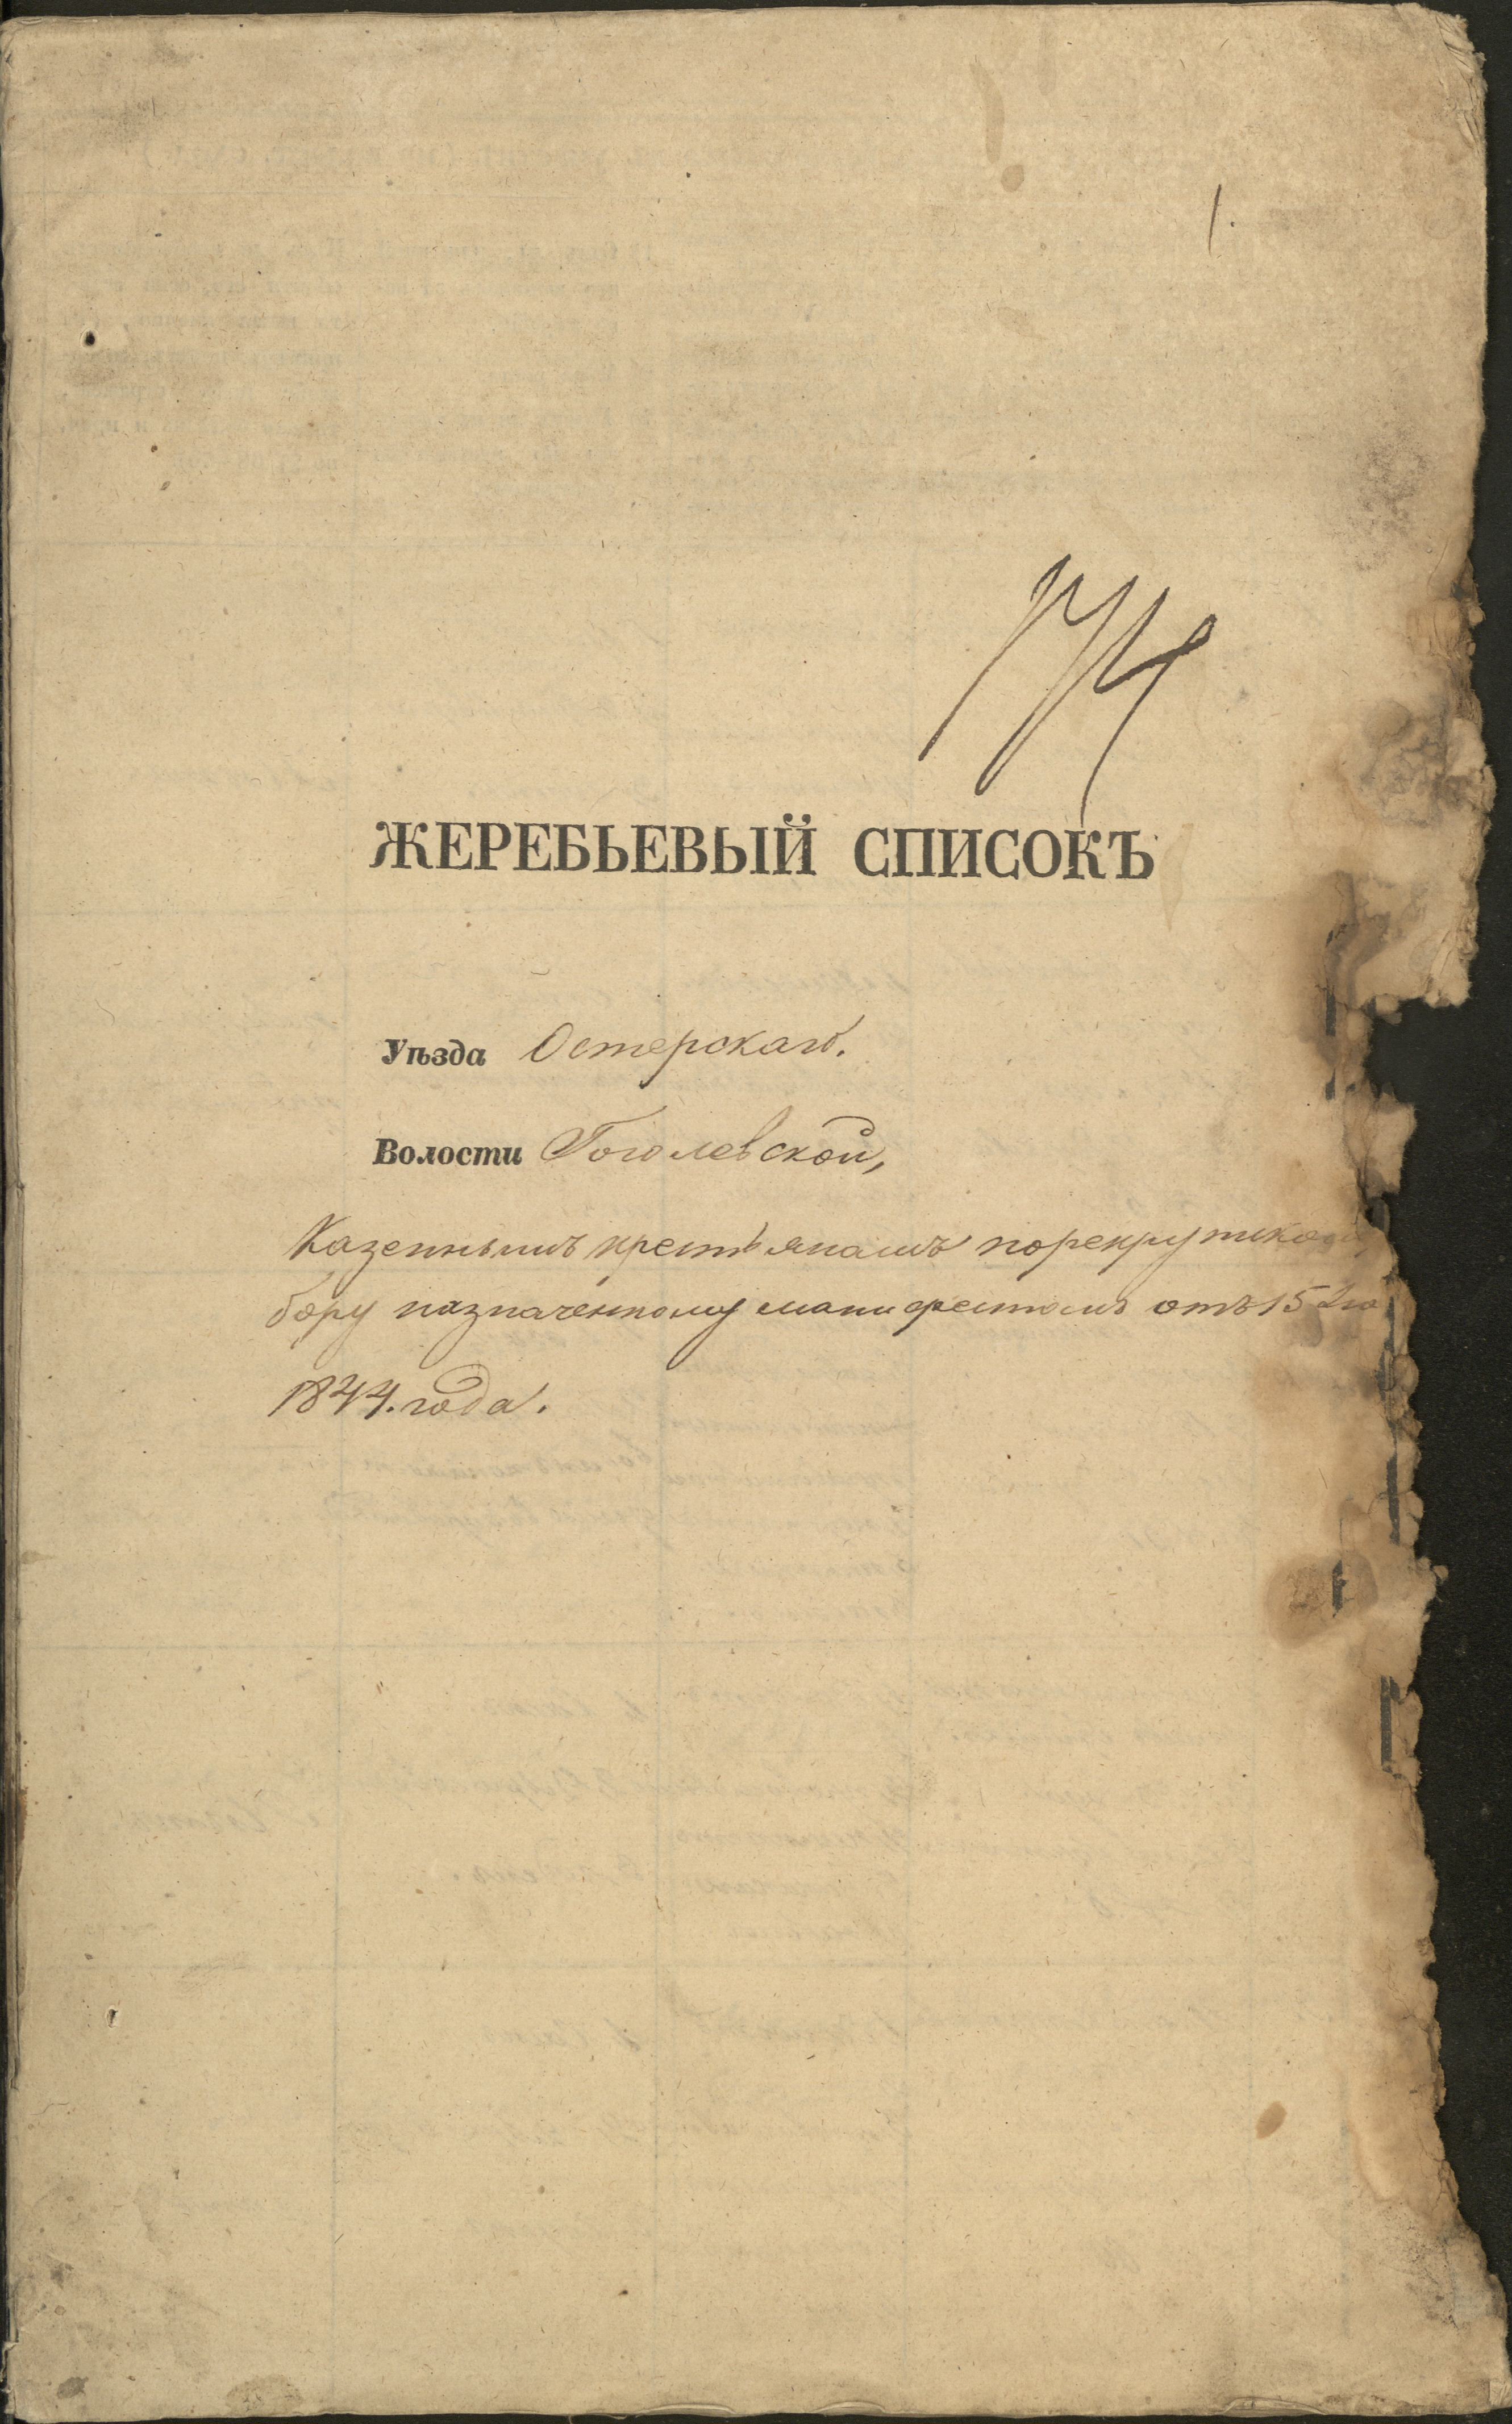 1.
ЖЕРЕБЬЕВЫЙ СПИСОКЪ
Уѣзда Остерскаго.
Волости Гоголевской,
Казеннымъ крестьянамъ порекрутско
бору назначенному манифестомъ отъ 15 2го
1844. года.